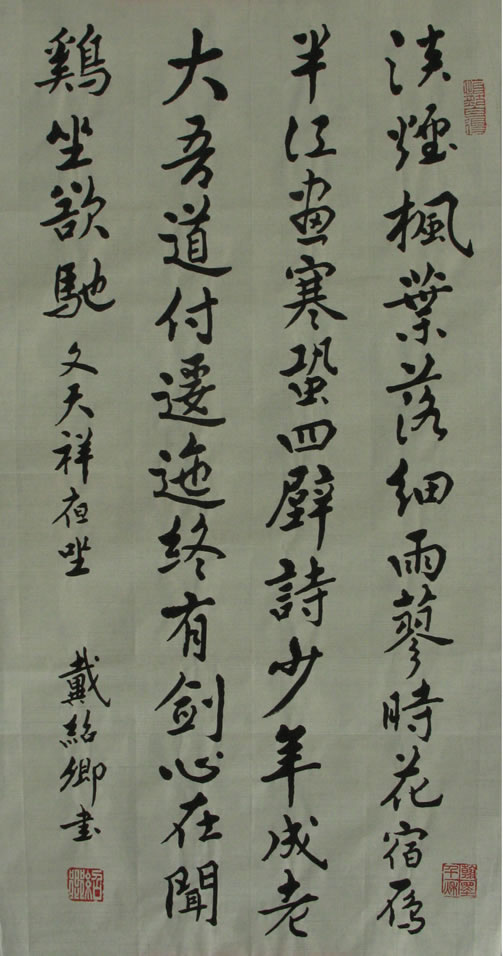 淡煙楓葉落細雨蓼時花宿雁
半江畫寒蛩四壁詩少年成老
大吾道付逶迤終有劍心在聞
鷄坐欲馳 文天祥夜坐 戴紹卿書